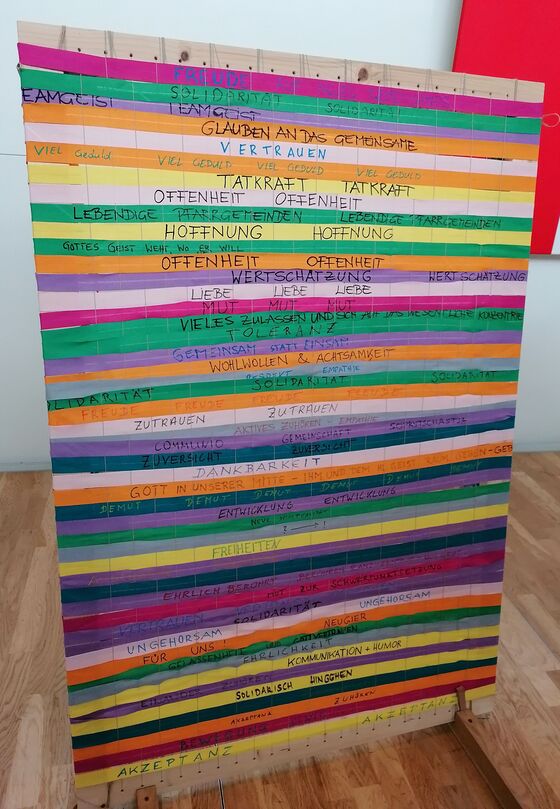 FREUDE
SOLIDARITÄT SOLIDARITÄT
TEAMGEIST TEAMGEIST
GLAUBEN AN DAS GEMEINSAME
VERTRAUEN
VIEL Geduld VIEL GEDULD VIEL GEDULD VIEL GEDULD
TATKRAFT TATKRAFT
OFFENHEIT OFFENHEIT
LEBENDIGE PFARRGEMEINDEN LEBENDIGE PFARRGEMEINDEN
HOFFNUNG HOFFNUNG
GOTTES GEIST WEHT, WO ER WILL
OFFENHEIT OFFENHEIT
WERTSCHÄTZUNG WERTSCHÄTZUNG
LIEBE LIEBE LIEBE
MUT MUT MUT
VIELES ZULASSEN UND SICH AUF DAS WESENTLICHE
TOLERANZ
GEMEINSAM STATT EINSAM
WOHLWOLLEN & ACHTSAMKEIT
RESPEKT EMPATHIE
SOLIDARITÄT SOLIDARITÄT SOLIDARITÄT
FREUDE FREUDE FREUDE FREUDE
ZUTRAUEN ZUTRAUEN
AKTIVES ZUHÖREN & EMPATHIE
COMMUNIO GEMEINSCHAFT
ZUVERSICHT ZUVERSICHT
DANKBARKEIT
GOTT IN UNSERER MITTE - IHM UND DEM HL. GEIST RAUM GEBEN
DEMUT DEMUT DEMUT DEMUT DEMUT DEMUT
ENTWICKLUNG ENTWICKLUNG
? → !
FREIHEITEN
EHRLICH BERÜHRT
MUT ZUR SCHWERPUNKTSETZUNG
VERTRAUEN SOLIDARITÄT UNGEHORSAM
UNGEHORSAM NEUGIER
FÜR UNS!
GELASSENHEIT GOTTVERTRAUEN
EHRLICHKEIT
KOMMUNIKATION + HUMOR
ZUHÖREN
SOLIDARISCH HINGEHEN
AKZEPTANZ ZUHÖREN
BEWEGUNG
AKZEPTANZ AKZEPTANZ